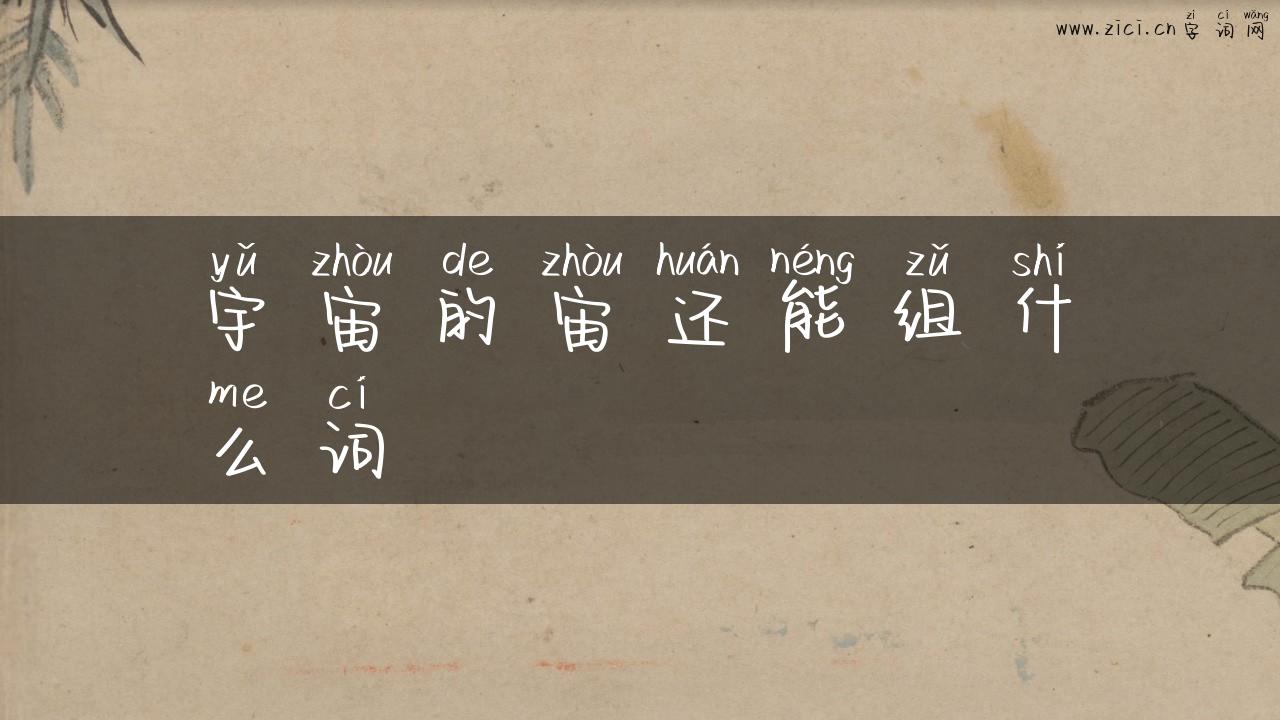 zì cí wǎng
www.zici.cn 字 词 网
yǔ zhòu de zhòu huán néng zǔ shí
宇 宙 的 宙 还 能 组 什
me cí
么 词